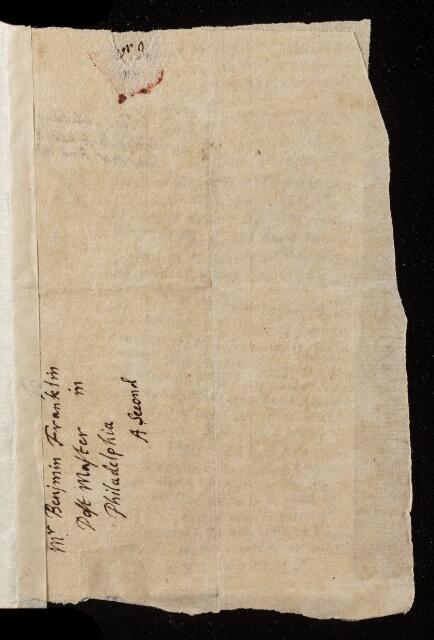 Mr Benjmin Franklin
Post Master in
Philadelphia
A Second